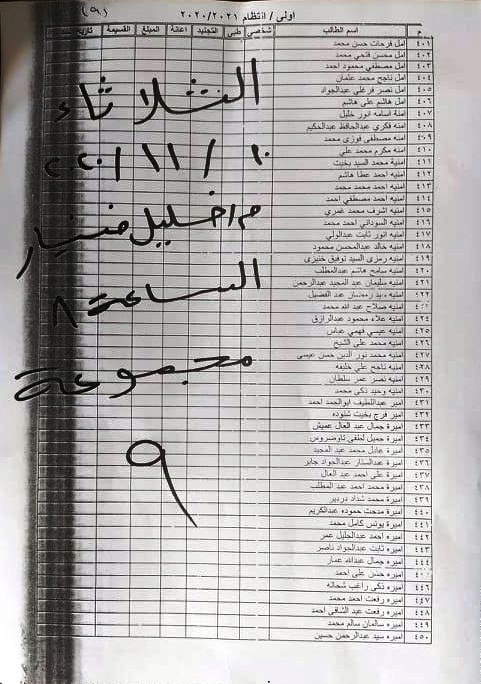 (٩)
اولى / انتظام ٢٠٢٠/٢٠٢١
م اسم الطالب شخصى طبى التجنيد اعانة المبلغ القسيمة تاريخ
٤٠١ امل فرحات حسن محمد
٤٠٢ امل محسن فتحي محمد
٤٠٣ امل مصطفي محمود احمد
٤٠٤ امل ناجح محمد عثمان
٤٠٥ امل نصر فرغلي عبدالجواد
٤٠٦ امل هاشم علي هاشم
٤٠٧ امنة اسامه انور خليل
٤٠٨ امنه فكري عبدالحافظ عبدالحكيم
٤٠٩ امنه مصطفى فوزى محمد
٤١٠ امنه مكرم محمد علي
٤١١ امنية محمد السيد بخيت
٤١٢ امنيه احمد عطا هاشم
٤١٣ امنيه احمد محمد محمد
٤١٤ امنيه احمد مصطفي احمد
٤١٥ امنيه اشرف محمد غمري
٤١٦ امنيه السوداني احمد محمد
٤١٧ امنيه انور ثابت عبدالولي
٤١٨ امنيه خالد عبدالمحسن محمود
٤١٩ امنيه رمزى السيد توفيق
٤٢٠ امنيه سامح هاشم عبدالمطلب
٤٢١ امنيه سليمان عبد المجيد عبدالرحمن
٤٢٢ امنيه عبد الفضيل
امنيه صلاح عبد الله محمد
٤٢٤ امنيه علاء محمود عبدالرازق
٤٢٥ امنيه عيسي فهمي عباس
٤٢٦ امنيه محمد علي الشيخ
٤٢٧ امنيه محمد نور الدين حسن عيسى
٤٢٨ امنيه ناجح علي خليفه
٤٢٩ امنيه نصر عمر سلطان
٤٣٠ امنيه وحيد ذكى محمد
٤٣١ امير عبداللطيف ابوالحمد احمد
٤٣٢ اميرة فرج بخيت شنوده
٤٣٣ اميرة جمال عبد العال عميش
٤٣٤ اميرة جميل لطفي تاوضروس
٤٣٥ اميرة عادل محمد عبد المجيد
٤٣٦ اميرة عبدالستار عبدالجواد جابر
٤٣٧ اميرة علي احمد عبد العال
٤٣٨ اميرة محمد احمد عبد المطلب
٤٣٩ اميرة محمد شداد دردير
٤٤٠ اميرة مدحت حموده عبدالكريم
٤٤١ اميرة يونس كامل محمد
٤٤٢ اميره احمد عبدالجليل عمر
٤٤٣ اميره ثابت عبدالجواد ناصر
٤٤٤ اميره جمال عبدالله عمار
اميره حسن علي احمد
٤٤٦ اميره ذكى راغب شحاته
٤٤٧ اميره رفعت احمد محمد
٤٤٨ اميره رفعت عبد الشافى احمد
٤٤٩ اميره سالمان سالم محمد
٤٥٠ اميره سيد عبدالرحمن حسين
الثلاثاء
١٠ / ١١ / ٢٠٢٠
الساعة ٨
مجموعة
٩